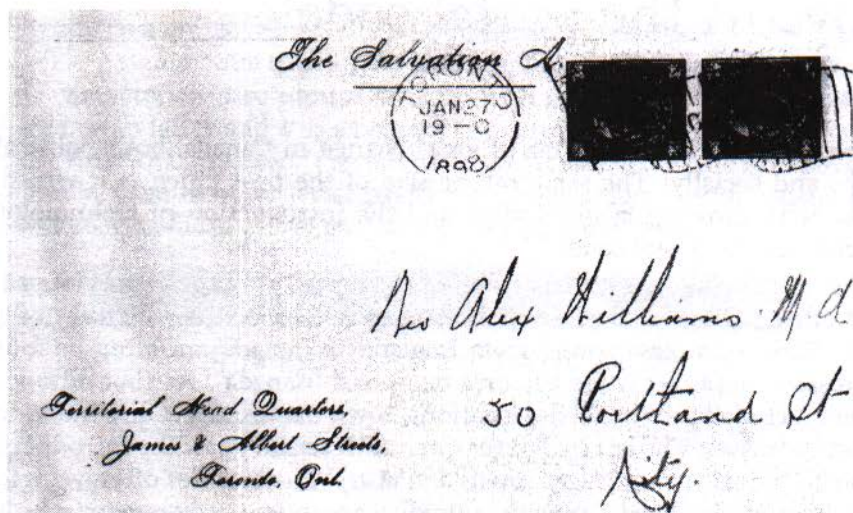 The Salvation A
TORONTO
JAN 27
19-0
1898
Rev Alex Williams. M A
50 Portland St
City
Territorial Head Quarters,
James & Albert Streets,
Toronto, Ont.